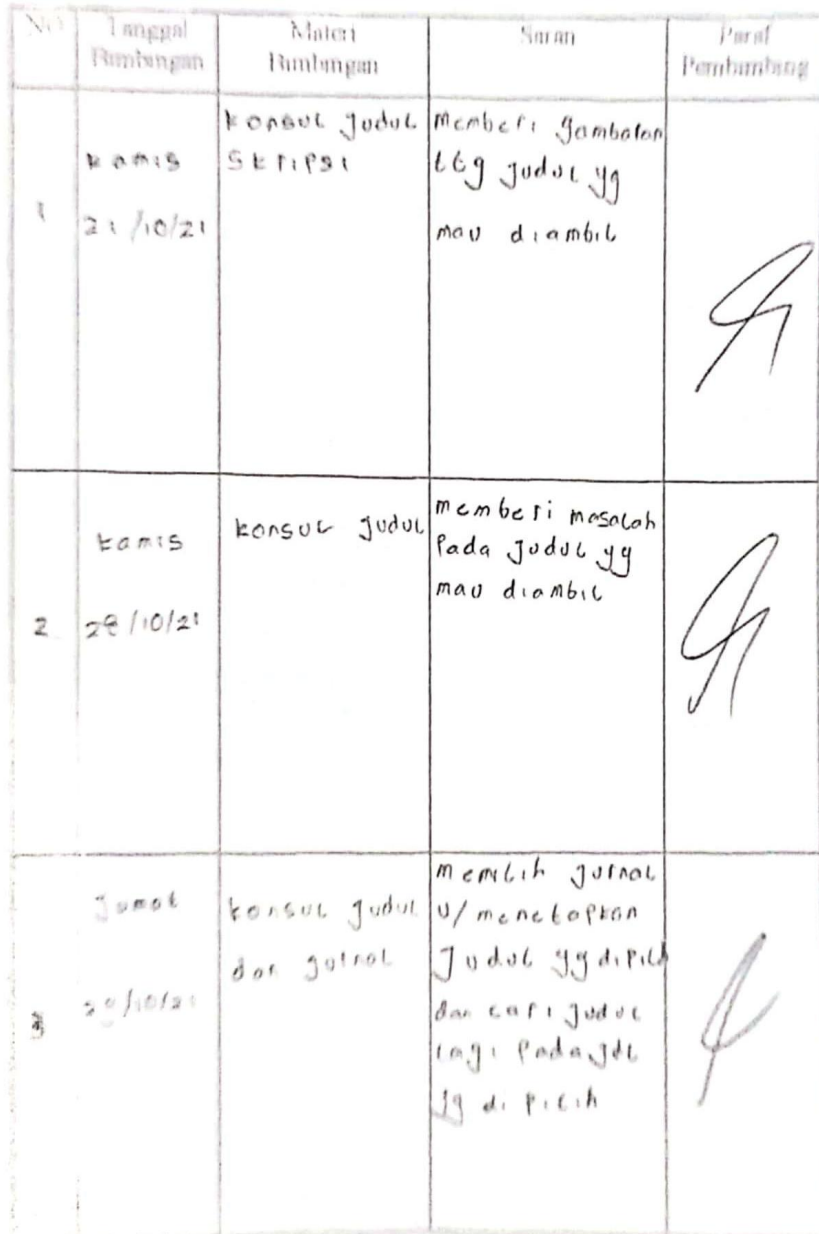 NO
Tanggal
Bimbingan
Materi
Bimbingan
Saran
Paraf
Pembimbing
1
kamis
21/10/21
konsul judul
skripsi
memberi gambaran
ttg judul yg
mau diambil
2
kamis
28/10/21
konsul judul
memberi masalah
pada judul yg
mau diambil
3
Jumat
29/10/21
konsul judul
dan jurnal
memilih jurnal
u/ menetapkan
judul yg dipilih
dan cari judul
lagi pada jdl
yg di pilih